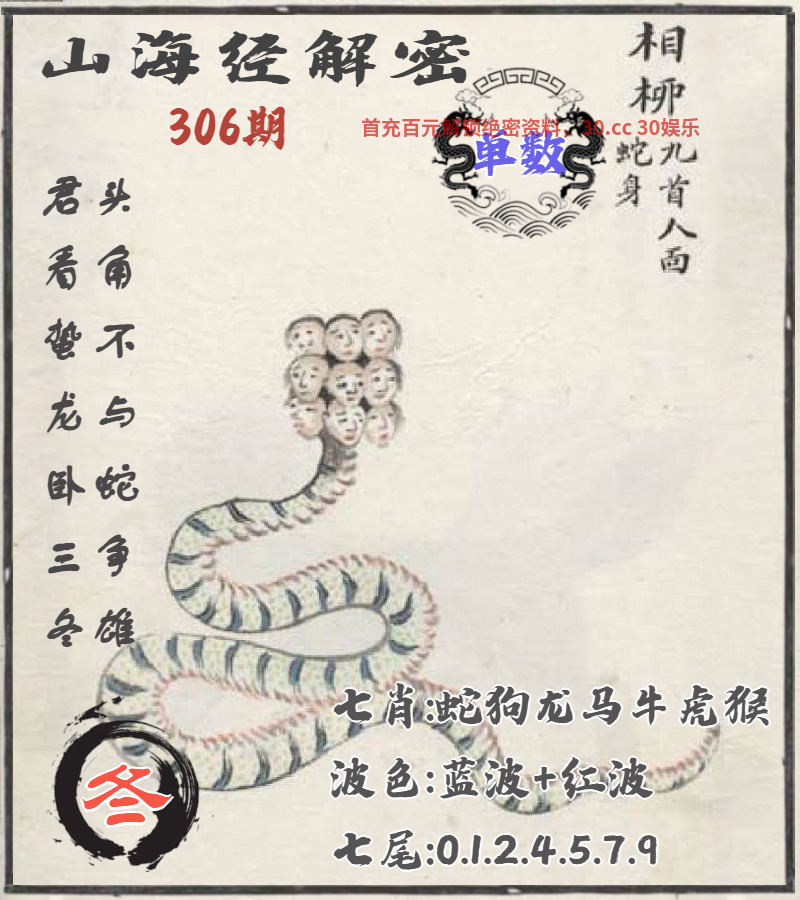 山海经解密
306期
首充百元解锁绝密资料，30.cc 30娱乐
单数
相柳
九首人面
蛇身
君看蛰龙卧三冬
头角不与蛇争雄
七肖:蛇狗龙马牛虎猴
波色:蓝波+红波
七尾:0.1.2.4.5.7.9
冬